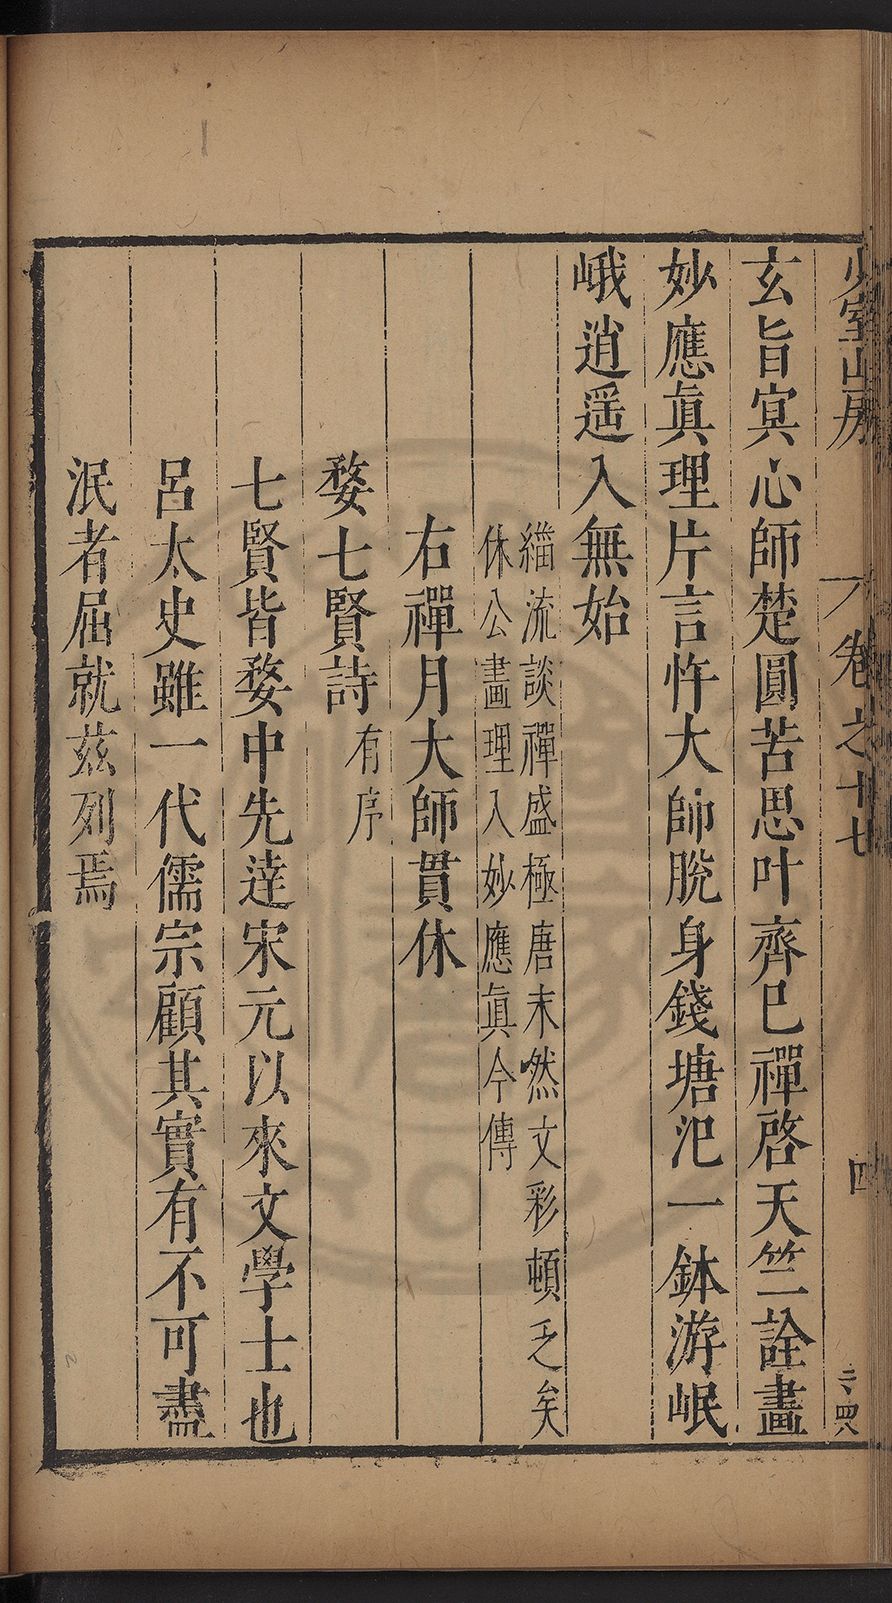 少室山房
卷之十七
四
二、四八
玄旨冥心師楚圓苦思叶齊巳禪啓天竺詮畫
妙應眞理片言忤大師脫身錢塘汜一鉢游岷
峨逍遥入無始
緇流談禪盛極唐末然文彩頓乏矣
休公畫理入妙應眞今傳
右禪月大師貫休
婺七賢詩有序
七賢皆婺中先達宋元以來文學士也
呂太史雖一代儒宗顧其實有不可盡
泯者屈就茲列焉